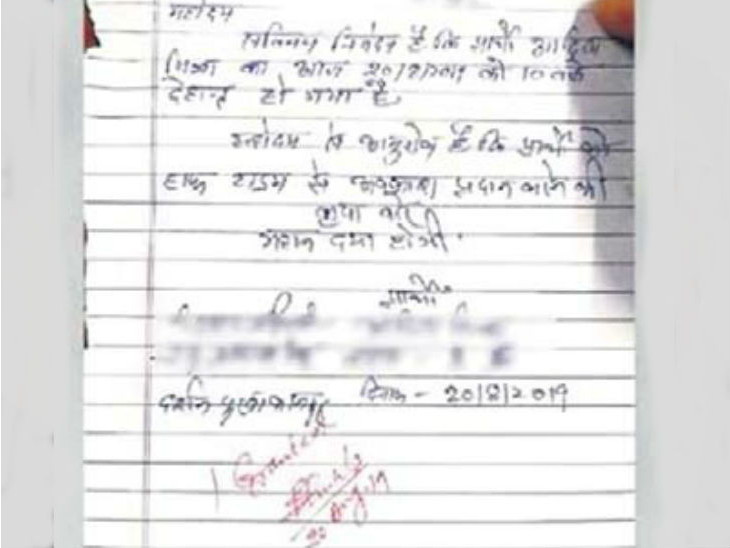 महोदय
सविनय निवेदन है कि प्रार्थी आदित्य
मिश्रा का आज 20/8/2019 को 10 बजे
देहान्त हो गया है
महोदय से अनुरोध है कि प्रार्थी को
हाफ टाइम से अवकाश प्रदान करने की
कृपा करें
महान दया होगी।
प्रार्थी
दिनांक - 20/8/2019
Granted
20 Aug 19